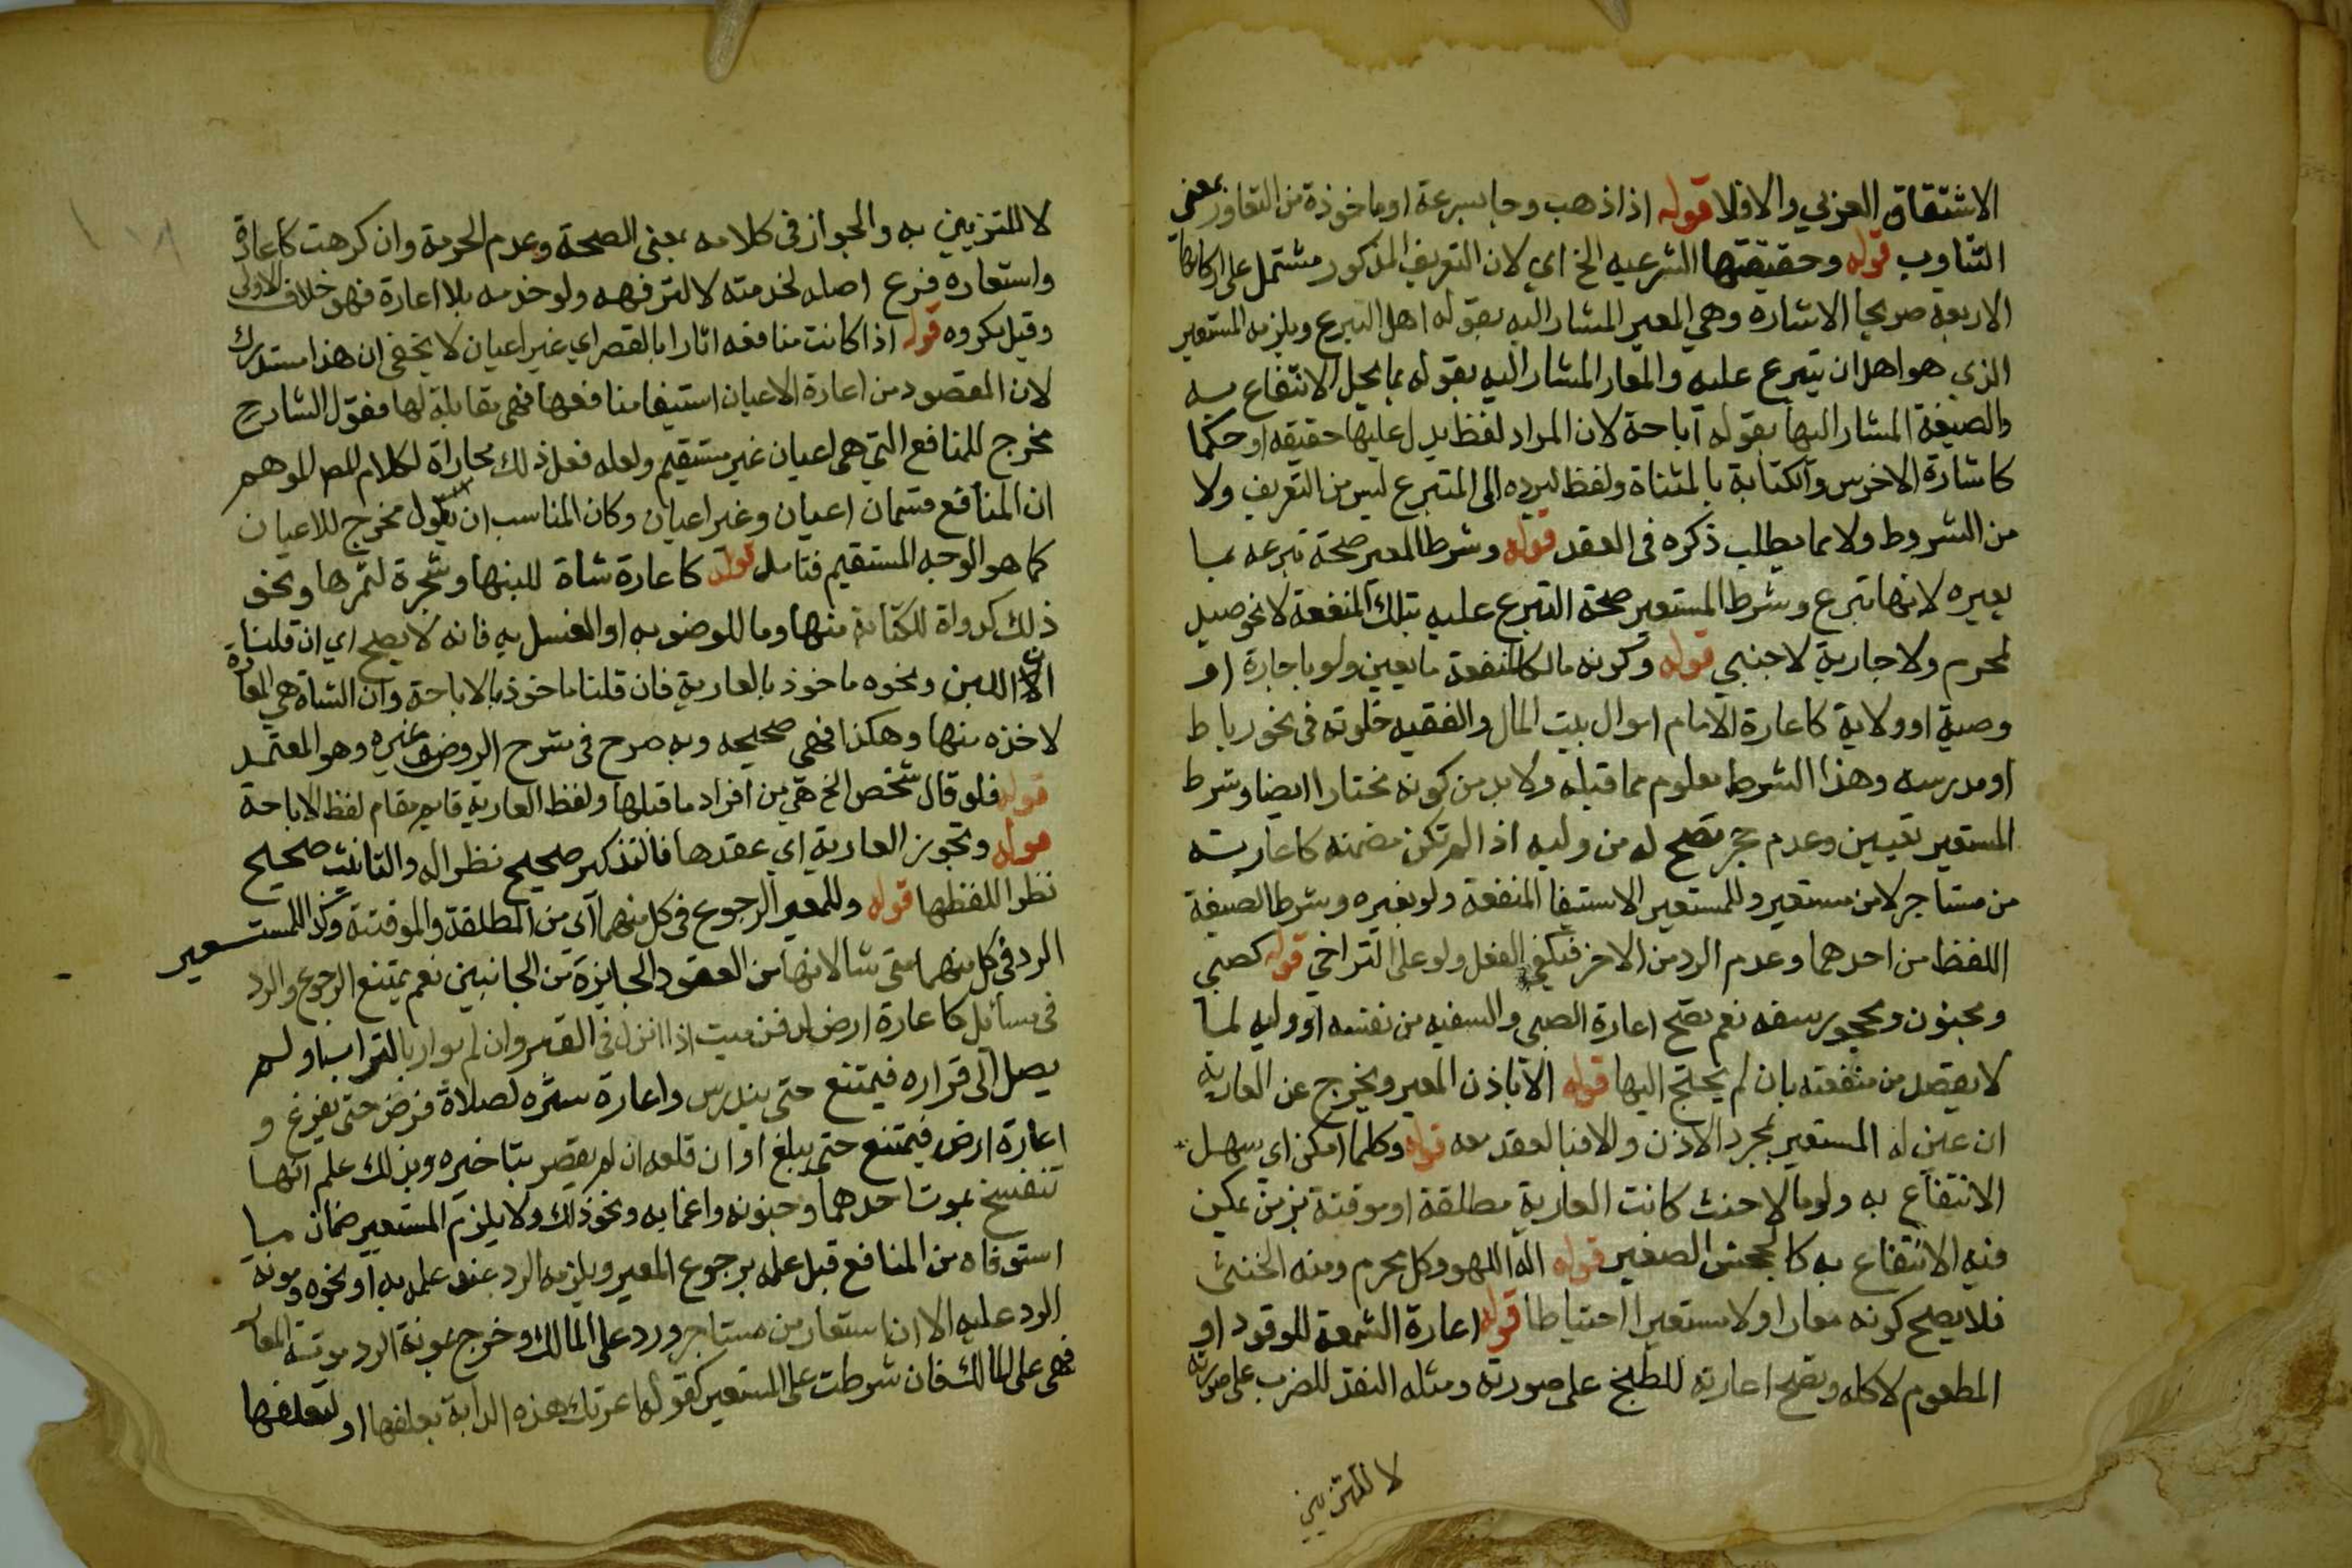 الاشتقاق العزبي والافلا قوله اذا ذهب وجا بسرعة او ماخوذة من التعاور بمعني
التناوب قوله وحقيقتها الشرعيه الخ اي لان التعريف المذكور مشتمل على اركانها
الاربعة صريحا الاشارة وهي المعير المشار اليه بقوله اهل التبرع ويلزمه المستعير
الذي هو اهل ان يتبرع عليه والمعار المشار اليه بقوله بما يحل الانتفاع به
والصيغة المشار اليها بقوله اباحة لان المراد لفظ يدل عليها حقيقة او حكما
كاشارة الاخرس والكتابة بالمثناة ولفظ ليرده الى المتبرع ليس من التعريف ولا
من الشروط ولا مما يطلب ذكره فى العقد قوله وشرط المعير صحة تبرعه بما
يعيره لانها تبرع وشرط المستعير صحة التبرع عليه بتلك المنفعة لا نحو صيد
لمحرم ولا جارية لاجنبي قوله وكونه مالكا لمنفعة ما يعين ولو باجارة او
وصية او ولاية كاعارة الامام اموال بيت المال والفقيه خلوته فى نحو رباط
او مدرسه وهذا الشرط معلوم مما قبله ولا بد من كونه مختارا ايضا وشرط
المستعير تعيين وعدم حجر تصح له من وليه اذا لم تكن مضمنه كاعاريته
من مستاجر لا من مستعير وللمستعير الاستيفا المنفعة ولو بغيره وشرط الصيغة
اللفظ من احدهما وعدم الرد من الاخر فيكفي الفعل ولو على التراخي قوله كصبي
ومجنون ومحجور سفه نعم تصح اعارة الصبي والسفيه من نفسه او وليه لما
لا يقصد من منفعته بان لم يحتج اليها قوله الا باذن المعير ويخرج عن العارية
ان عين له المستعير بمجرد الاذن والا فبالعقد معه قوله وكلما امكن اي سهل
الانتفاع به ولو مالا حنث كانت العارية مطلقة او موقتة بزمن يمكن
فيه الانتفاع به كالجحش الصغير قوله الة اللهو وكل محرم ومنه الخنثى
فلا يصح كونه معارا ولا مستعيرا احتياطا قوله اعارة الشمعة للوقود او
المطعوم لاكله وتصح اعارته للطبخ على صورته ومثله النقد للضرب على صورته
لا للتزيين
لا للتزيين به والجواز فى كلامه بمعنى الصحة وعدم الحرمة وان كرهت كاعارة
واستعاره فرع اصله لخدمته لا لترفهه ولو خدمه بلا اعارة فهو خلاف الاولى
وقيل مكروه قوله اذا كانت منافعه اثارا بالقصر اي غير اعيان لا يخفى ان هذا مستدرك
لان المقصود من اعارة الاعيان استيفا منافعها فهى مقابلة لها فقول الشارح
مخرج للمنافع التي هى اعيان غير مستقيم ولعله فعل ذلك مجاراة لكلام المص الموهم
ان المنافع قسمان اعيان وغير اعيان وكان المناسب ان يقول مخرج للاعيان
كما هو الوجه المستقيم فتامل قوله كاعارة شاة للبنها وشجرة لثمرها ونحو
ذلك كدواة للكتابة منها وما للوضو به او الغسل به فانه لا يصح اي ان قلنا
ان اللبن ونحوه ماخوذ بالعارية فان قلنا ماخوذ بالاباحة وان الشاة هى المعارة
لاخذه منها وهكذا فهى صحيحه وبه صرح فى شرح الروض وغيره وهو المعتمد
قوله فلو قال شخص الخ هي من افراد ما قبلها ولفظ العارية قايم مقام لفظ الاباحة
قوله وتجوز العارية اي عقدها فالتذكير صحيح نظرا له والتانيث صحيح
نظرا للفظها قوله وللمعير الرجوع فى كل منهما اي من المطلقة والموقتة وكذا للمستعير
الرد في كل منهما متى شا لانها من العقود الجايزة من الجانبين نعم يمتنع الرجوع والرد
فى مسائل كاعارة ارض لدفن ميت اذا انزل فى القبر وان لم يوار بالتراب او لم
يصل الى قراره فيمتنع حتى يندرس واعارة ستره لصلاة فرض حتى يفرغ و
اعارة ارض فيمتنع حتى يبلغ اوان قلعه ان لم يقصر بتاخيره وبذلك علم انها
تنفسخ بموت احدهما وجنونه واغمايه ونحو ذلك ولا يلزم المستعير ضمان ما
استوفاه من المنافع قبل علمه برجوع المعير ويلزمه الرد عند علمه به او نحوه ومونة
الرد عليه الا ان استعار من مستاجر ورد على المالك وخرج بمونة الرد مونة المعار
فهى على المالك فان شرطت على المستعير كقوله اعرتك هذه الدابة بعلفها او لتعلفها